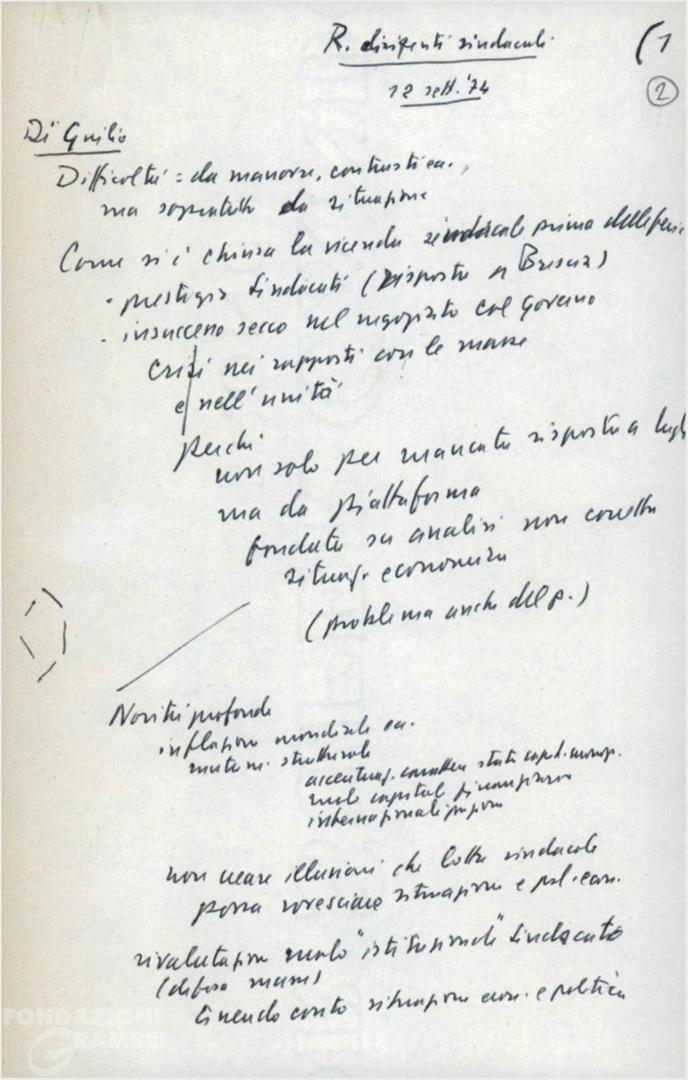 R. dirigenti sindacali
(1
12 sett. '74
2
Di Giulio
Difficoltà: da manovre, contrasti ec.
ma sopratutto da situazione
Come si è chiusa la vicenda sindacale prima delle ferie
· prestigio sindacati (risposta a Brescia)
· insuccesso secco nel negoziato col governo
crisi nei rapporti con le masse
e nell'unità
perché
non solo per mancata risposta a
ma da piattaforma
fondata su analisi non corretta
situaz. economica
(problema anche del p.)
Novità profonde
inflazione mondiale ec.
strutturale
accentuaz. carattere stato capit. monop.
ruolo capitale finanziario
internazionalizzazione
non creare illusioni che lotta sindacale
possa rovesciare situazione e pol. econ.
rivalutazione ruolo "istituzionale" sindacato
(difesa masse)
tenendo conto situazione econ. e politica
FONDAZIONE
GRAMSCI